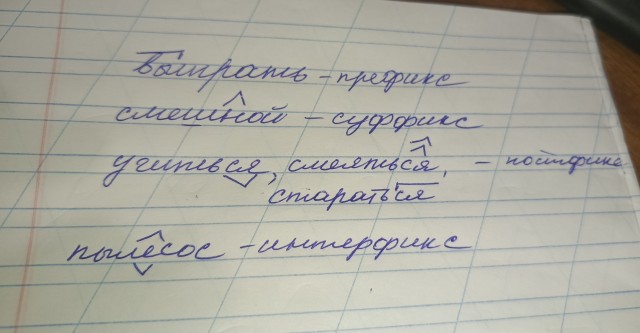 выиграть - префикс
смешной - суффикс
учиться, смеяться, - постфикс
стараться
пылесос - интерфикс